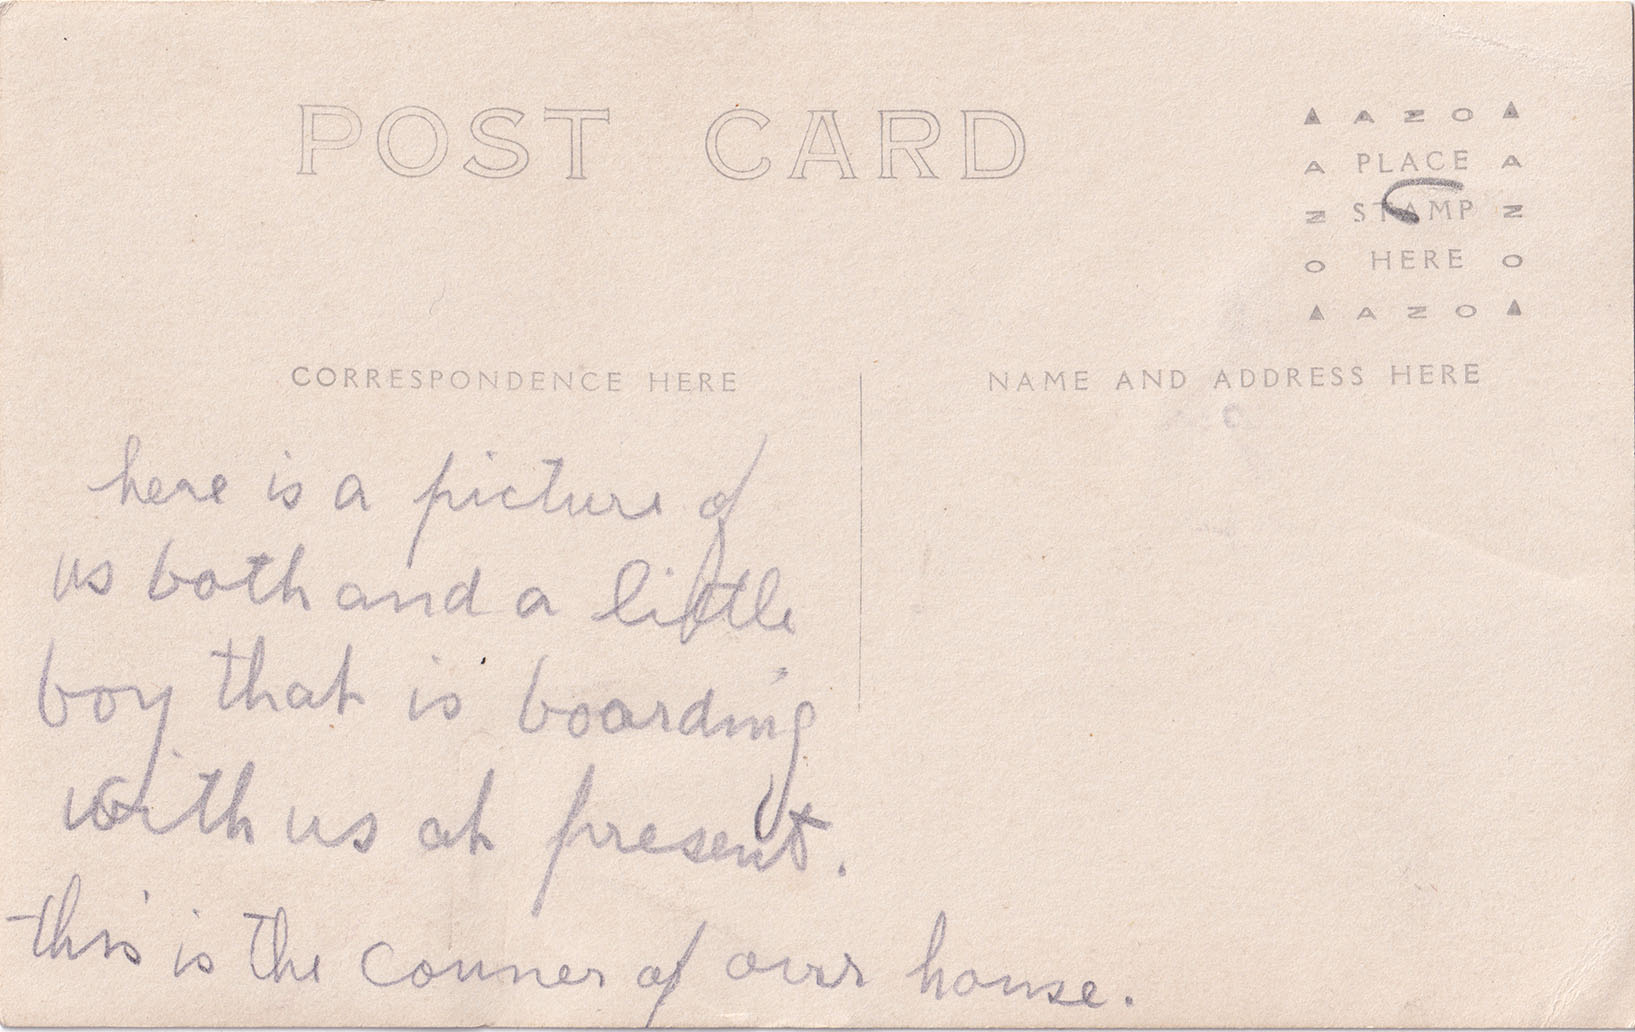 POST CARD
▲ A Z O ▲
A PLACE A
Z STAMP Z
O HERE O
▲ A Z O ▲
CORRESPONDENCE HERE
NAME AND ADDRESS HERE
here is a picture of
us both and a little
boy that is boarding
with us at present.
this is the conner of our house.